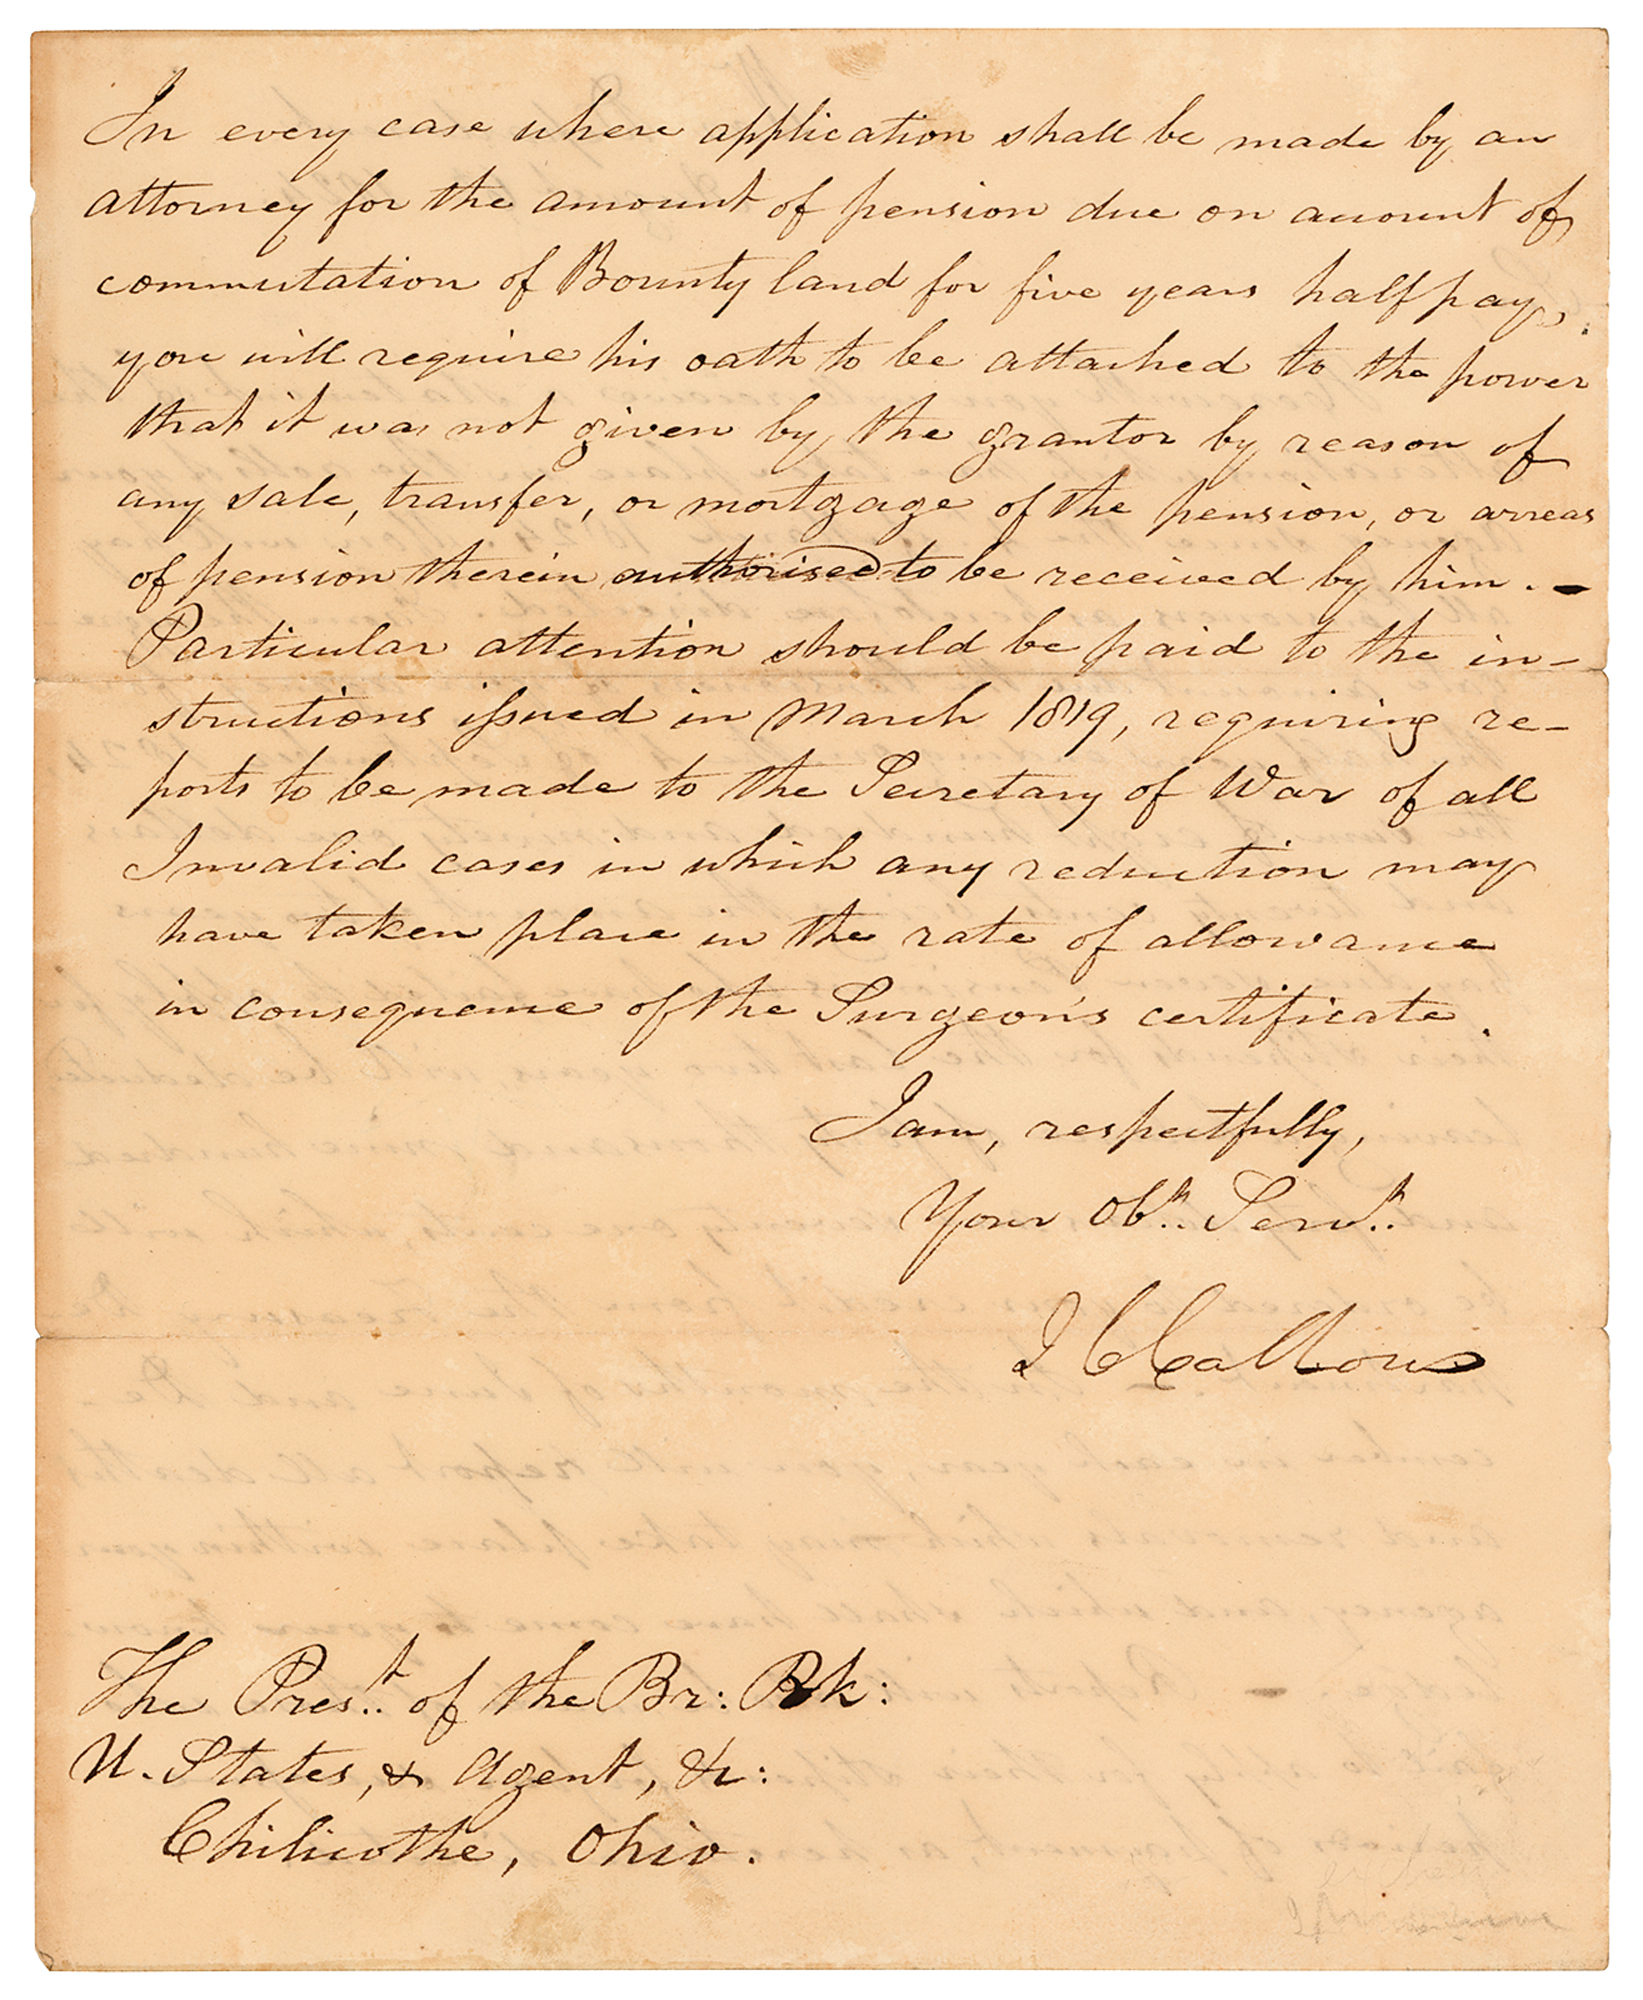 In every case where application shall be made by an
attorney for the amount of pension due on account of
commutation of Bounty land for five years half pay,
you will require his oath to be attached to the power
that it was not given by the grantor by reason of
any sale, transfer, or mortgage of the pension, or arreas
of pension therein authorised to be received by him. -
Particular attention should be paid to the in-
structions issued in March 1819, requiring re-
ports to be made to the Secretary of War of all
Invalid cases in which any reduction may
have taken place in the rate of allowance
in consequence of the Surgeon's certificate.
I am, respectfully,
Your Obt. Servt.
J C Calhoun
The Prest. of the Br: Bk:
U. States, & Agent, &c:
Chilicothe, Ohio.